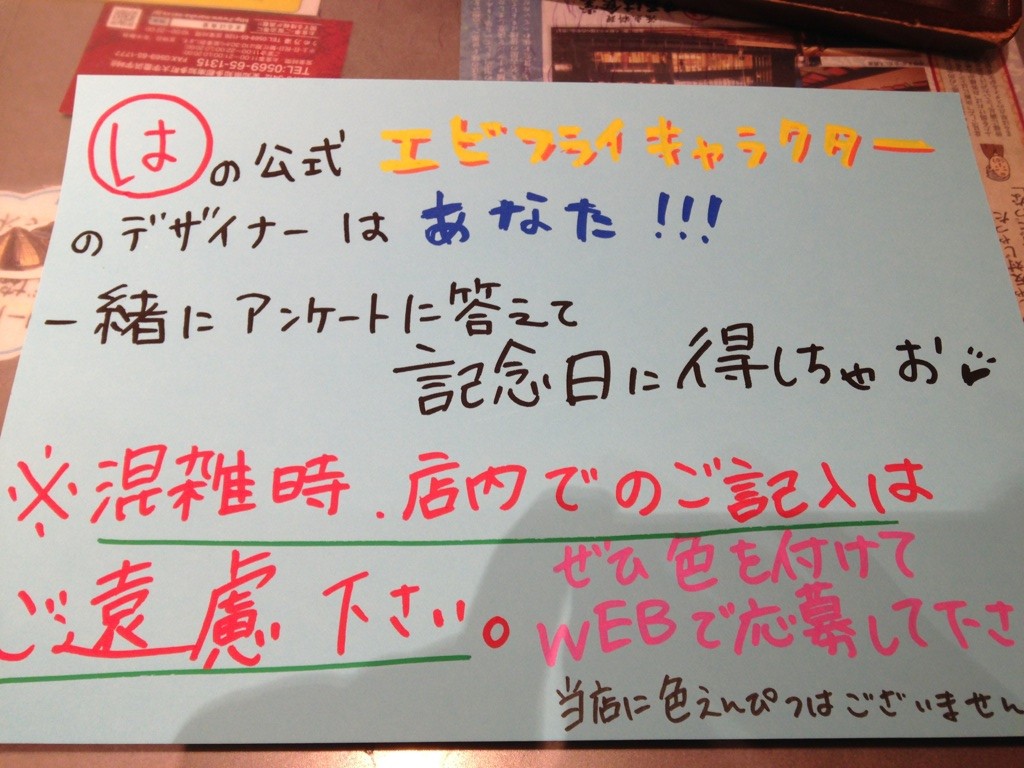 TEL:0569-65-1315
はの公式 エビフライキャラクター
のデザイナーは あなた!!!
一緒にアンケートに答えて
記念日に得しちゃお
※混雑時.店内でのご記入は
ご遠慮下さい。
ぜひ色を付けて
WEBで応募して下さ
当店に色えんぴつはございません